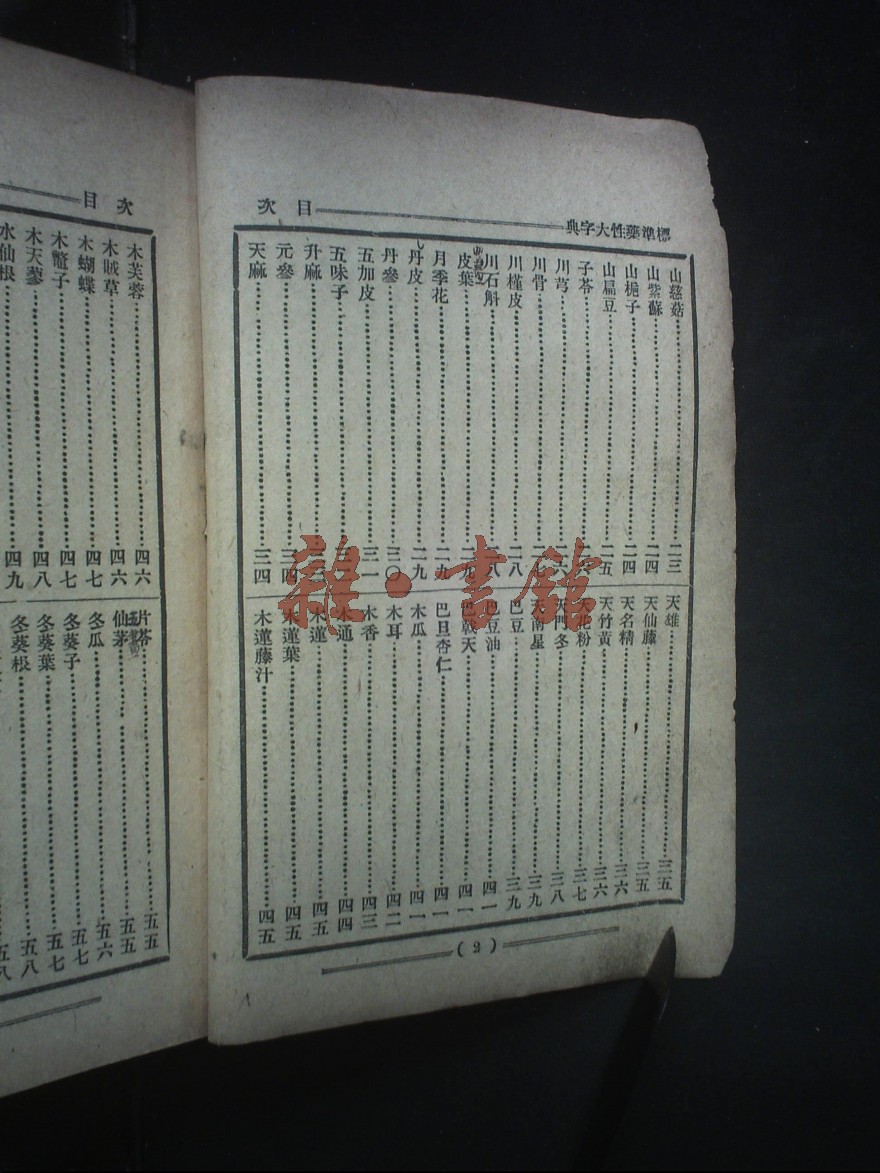 標準藥性大字典
目次
山慈菇 二三
山紫蘇 二四
山梔子 二四
山扁豆 二五
子苓
川芎 二六
川骨 二七
川槿皮 二八
川石斛 二八
皮葉 二九
月季花 二九
丹皮 二九
丹參 三〇
五加皮 三一
五味子
升麻
元參 三四
天麻 三四
天雄 三五
天仙藤 三五
天名精 三六
天竹黃 三六
天花粉 三七
天門冬 三八
天南星 三九
巴豆 三九
巴豆油 四一
巴戟天 四一
巴旦杏仁 四一
木瓜 四一
木耳 四二
木香 四三
木通 四四
木蓮 四五
木蓮葉 四五
木蓮藤汁 四五
(2)
目次
木芙蓉 四六
木賊草 四六
木蝴蝶 四七
木鼈子 四七
木天蓼 四八
水仙根 四九
片苓 五五
仙茅 五五
冬瓜 五六
冬葵子 五七
冬葵葉 五七
冬葵根 五八
五八
雜·書館